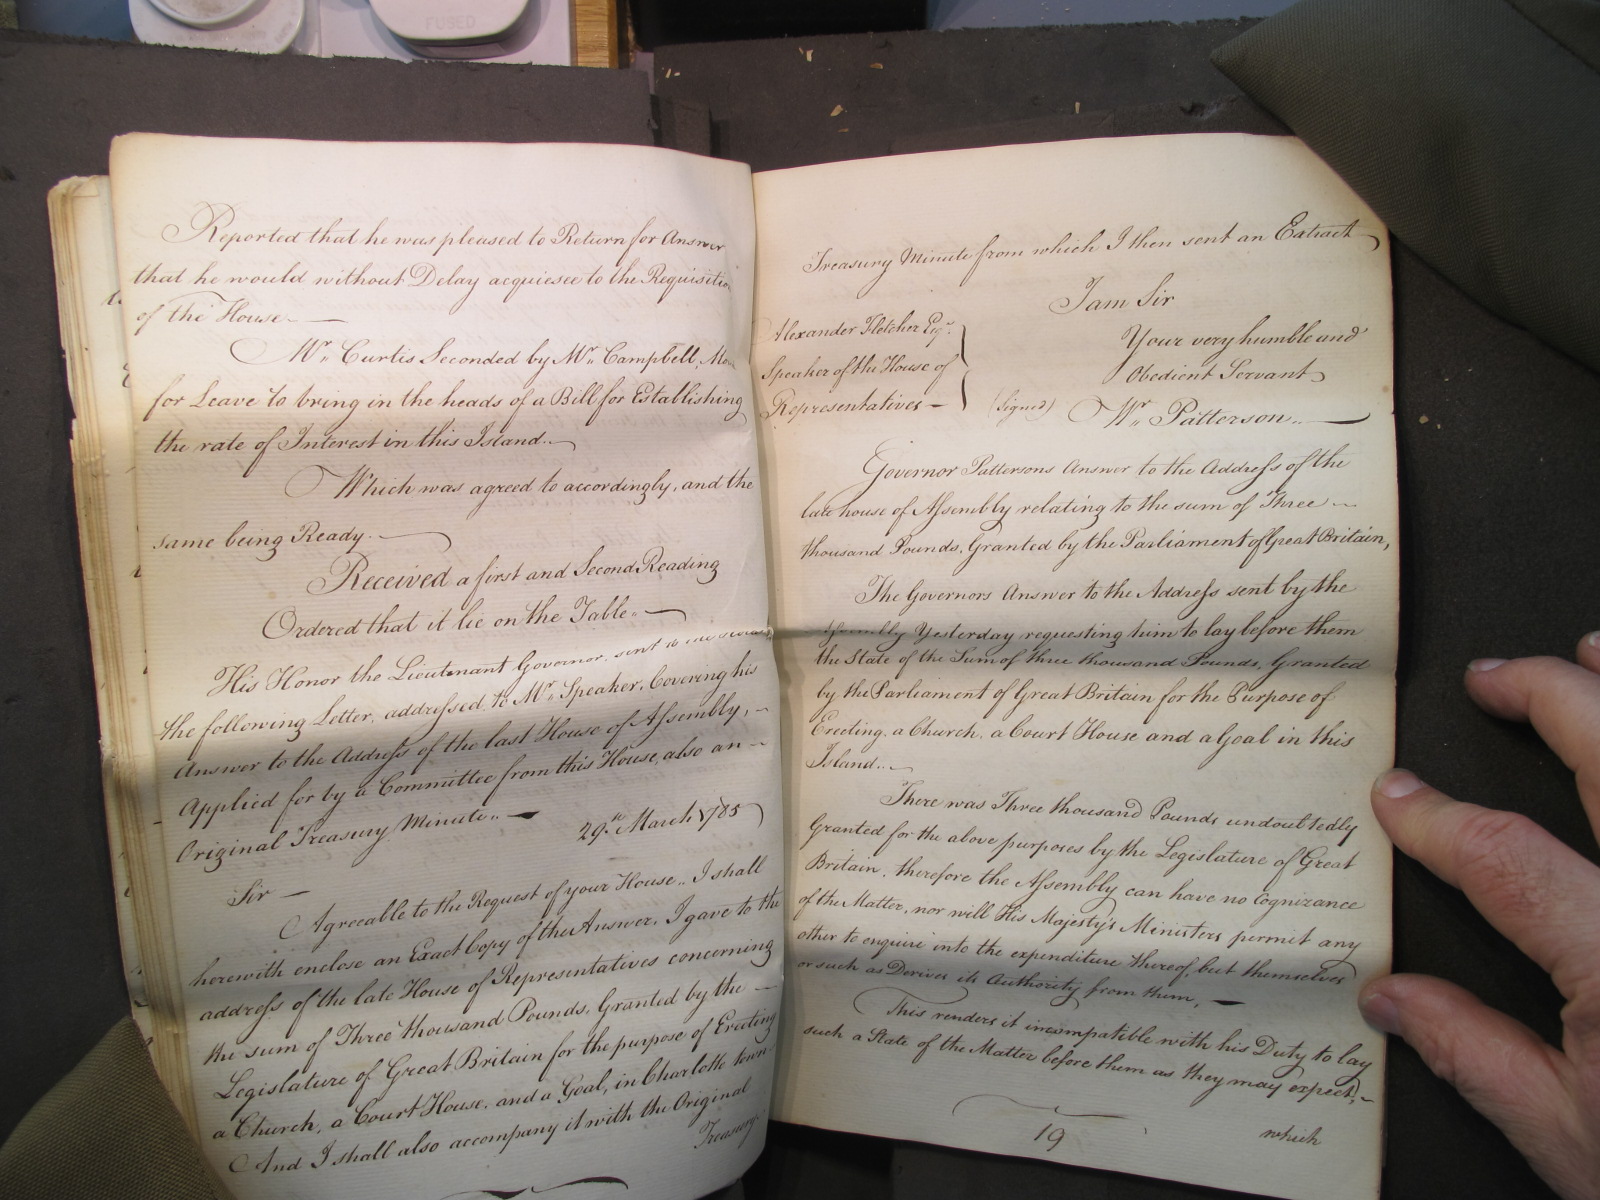 FUSED
Reported that he was pleased to Return for Answer
that he would without Delay acquiesce to the Requisition
of the House
Mr. Curtis Seconded by Mr. Campbell, Mov
for Leave to bring in the heads of a Bill for Establishing
the rate of Interest in this Island
Which was agreed to accordingly, and the
same being Ready
Received a first and Second Reading
Ordered that it lie on the Table
His Honor the Lieutenant Governor, sent to the
the following Letter, addressed to Mr. Speaker, Covering his
Answer to the Address of the last House of Assembly,
Applied for by a Committee from this House, also an
Original Treasury Minute
29th March 1785
Sir
Agreeable to the Request of your House, I shall
herewith enclose an Exact Copy of the Answer, I gave to the
address of the late House of Representatives concerning
the sum of Three thousand Pounds, Granted by the
Legislature of Great Britain for the purpose of Erecting
a Church, a Court House, and a Goal, in Charlotte town
And I shall also accompany it with the Original
Treasury
Treasury Minute from which I then sent an Extract
I am Sir
Your very humble and
Obedient Servant
Alexander Fletcher Esqr.
Speaker of the House of
Representatives
(Signed) Wr. Patterson
Governor Pattersons Answer to the Address of the
late house of Assembly relating to the sum of Three
thousand Pounds, Granted by the Parliament of Great Britain,
The Governors Answer to the Address sent by the
Assembly Yesterday requesting him to lay before them
the State of the Sum of three thousand Pounds, Granted
by the Parliament of Great Britain for the Purpose of
Erecting, a Church, a Court House and a Goal in this
Island
There was Three thousand Pounds undoubtedly
Granted for the above purposes by the Legislature of Great
Britain, therefore the Assembly can have no Cognizance
of the Matter, nor will His Majesty's Ministers permit any
other to enquire into the expenditure thereof, but themselves
or such as Derives its Authority from them,
This renders it incompatible with his Duty to lay
such a State of the Matter before them as they may expect,
19
which